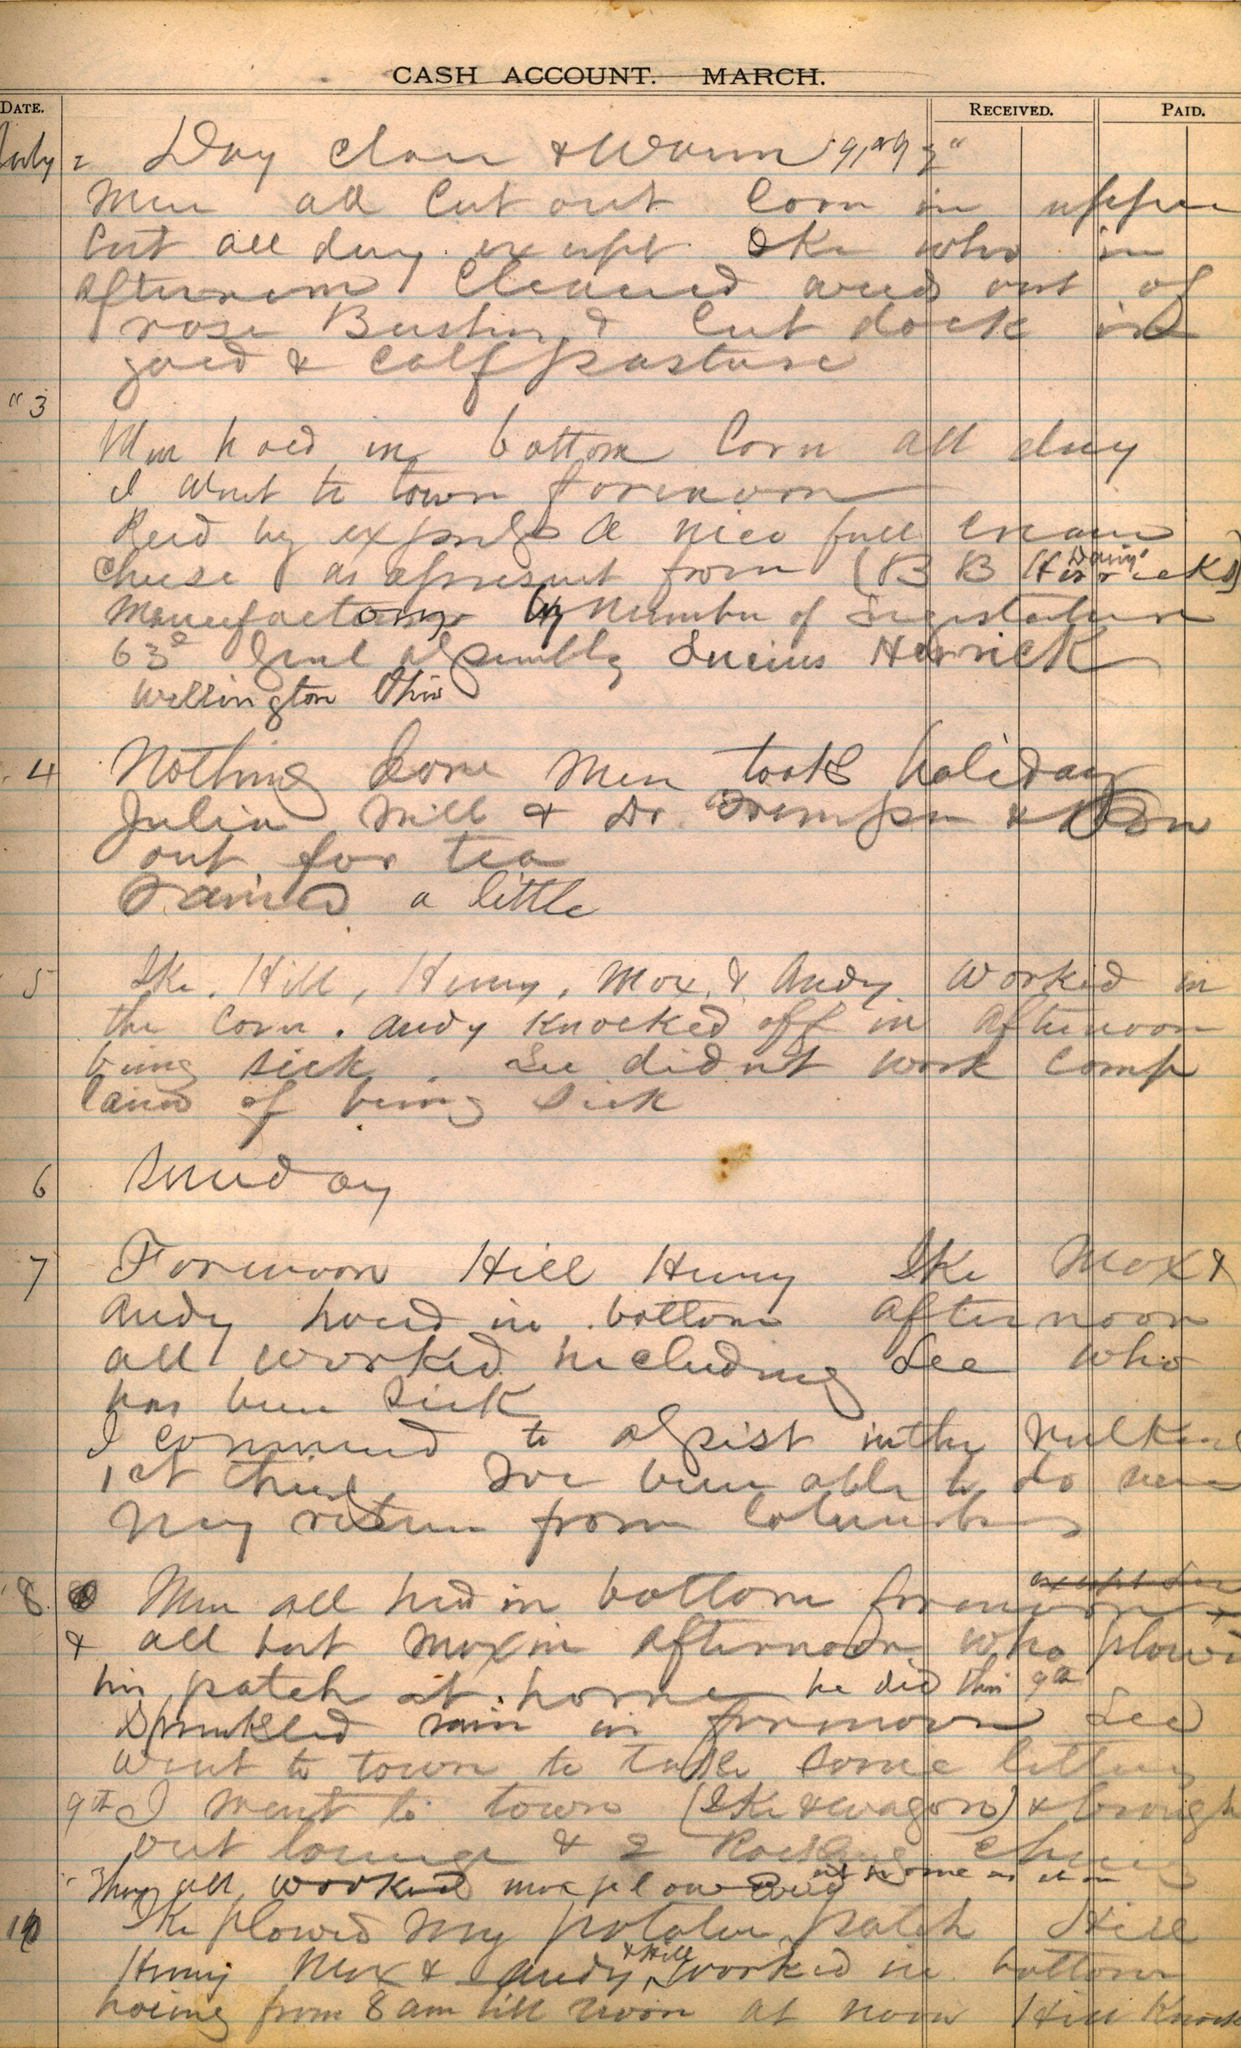 CASH ACCOUNT. MARCH.
DATE. RECEIVED. PAID.
July 2 Day clear & Warm
Men all Cut out Corn in upper
Cut all day except Ike who in
afternoon Cleaned weeds out of
rose Bushes & Cut dock in
yard & Calf pasture
" 3
Men hoed in bottom Corn all day
I went to town forenoon
Recd by express a nice full cream
Cheese as a present from (B B Herricks Dairy)
Manufactory by Member of Legislature
63d Genl Assembly Lucius Herrick
Wellington Ohio
4 Nothing done Men took holiday
Julia Will & Dr & Don
out for tea
rained a little
5 Ike, Hill, Henry, Mox, & Andy Worked in
the Corn. Andy Knocked off in Afternoon
being sick. Lee didnt work comp
laind of being Sick
6 Sunday
7 Forenoon Hill Henry Ike Mox &
Andy hoed in bottom afternoon
all worked including Lee who
has been Sick
I commenced to assist in the Milking
1st time Ive been able to do
my return from Columbus
8 Men all hoed in bottom forenoon except Lee
& all but Mox in afternoon who plowed
his patch at home he did this 9th
Sprinkled rain in forenoon Lee
went to town to take some letters
9th I went to town (Ike & wagon) & brough
out lounge & 2 Rocking Chairs
They all worked Mox plowed at home as
10 Ike plowed my potatoe patch Hill
Henry Mox & Andy & Hill worked in bottom
hoeing from 8 am till noon at noon Hill Knock